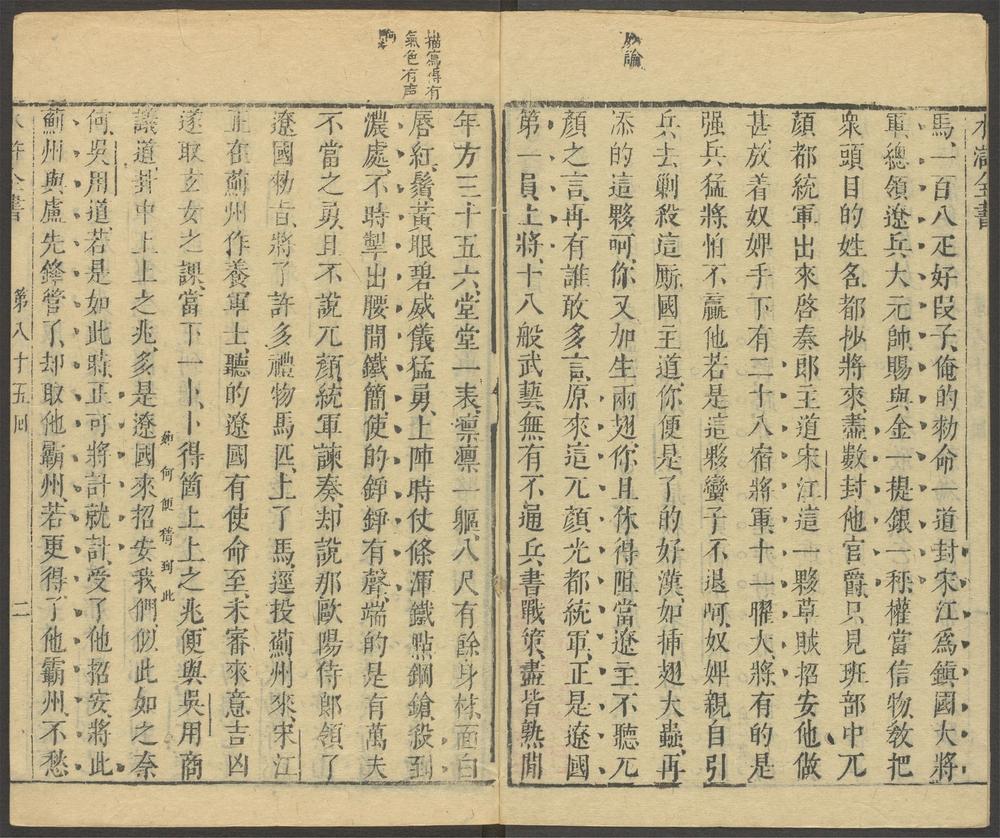 水滸全書
妙論
馬一百八疋好段子俺的勑命一道封宋江爲鎮國大將
軍總領遼兵大元帥賜與金一提銀一秤權當信物教把
衆頭目的姓名都抄將來盡數封他官爵只見班部中兀
顏都統軍出來啓奏郎主道宋江這一夥草賊招安他做
甚放着奴婢手下有二十八宿將軍十一曜大將有的是
强兵猛將怕不贏他若是這夥蠻子不退呵奴婢親自引
兵去剿殺這厮國主道你便是了的好漢如揷翅大蟲再
添的這夥呵你又加生兩翅你且休得阻當遼主不聽兀
顏之言再有誰敢多言原來這兀顏光都統軍正是遼國
第一員上將十八般武藝無有不通兵書戰策盡皆熟閒
描寫得有
氣色有声
年方三十五六堂堂一表凛凛一軀八尺有餘身材面白
唇紅鬚黃眼碧威儀猛勇上陣時仗條渾鐵點鋼鎗殺到
濃處不時掣出腰間鐵簡使的錚錚有聲端的是有萬夫
不當之勇且不說兀顏統軍諫奏却說那歐陽侍郎領了
遼國勑旨將了許多禮物馬匹上了馬逕投薊州來宋江
正在薊州作養軍士聽的遼國有使命至未審來意吉凶
遂取玄女之課當下一卜卜得箇上上之兆便與吳用商
議道卦中上上之兆多是遼國來招安我們似此如之奈
如何便猜到此
何吳用道若是如此時正可將計就計受了他招安將此
薊州與盧先鋒管了却取他霸州若更得了他霸州不愁
水滸全書 第八十五回 二